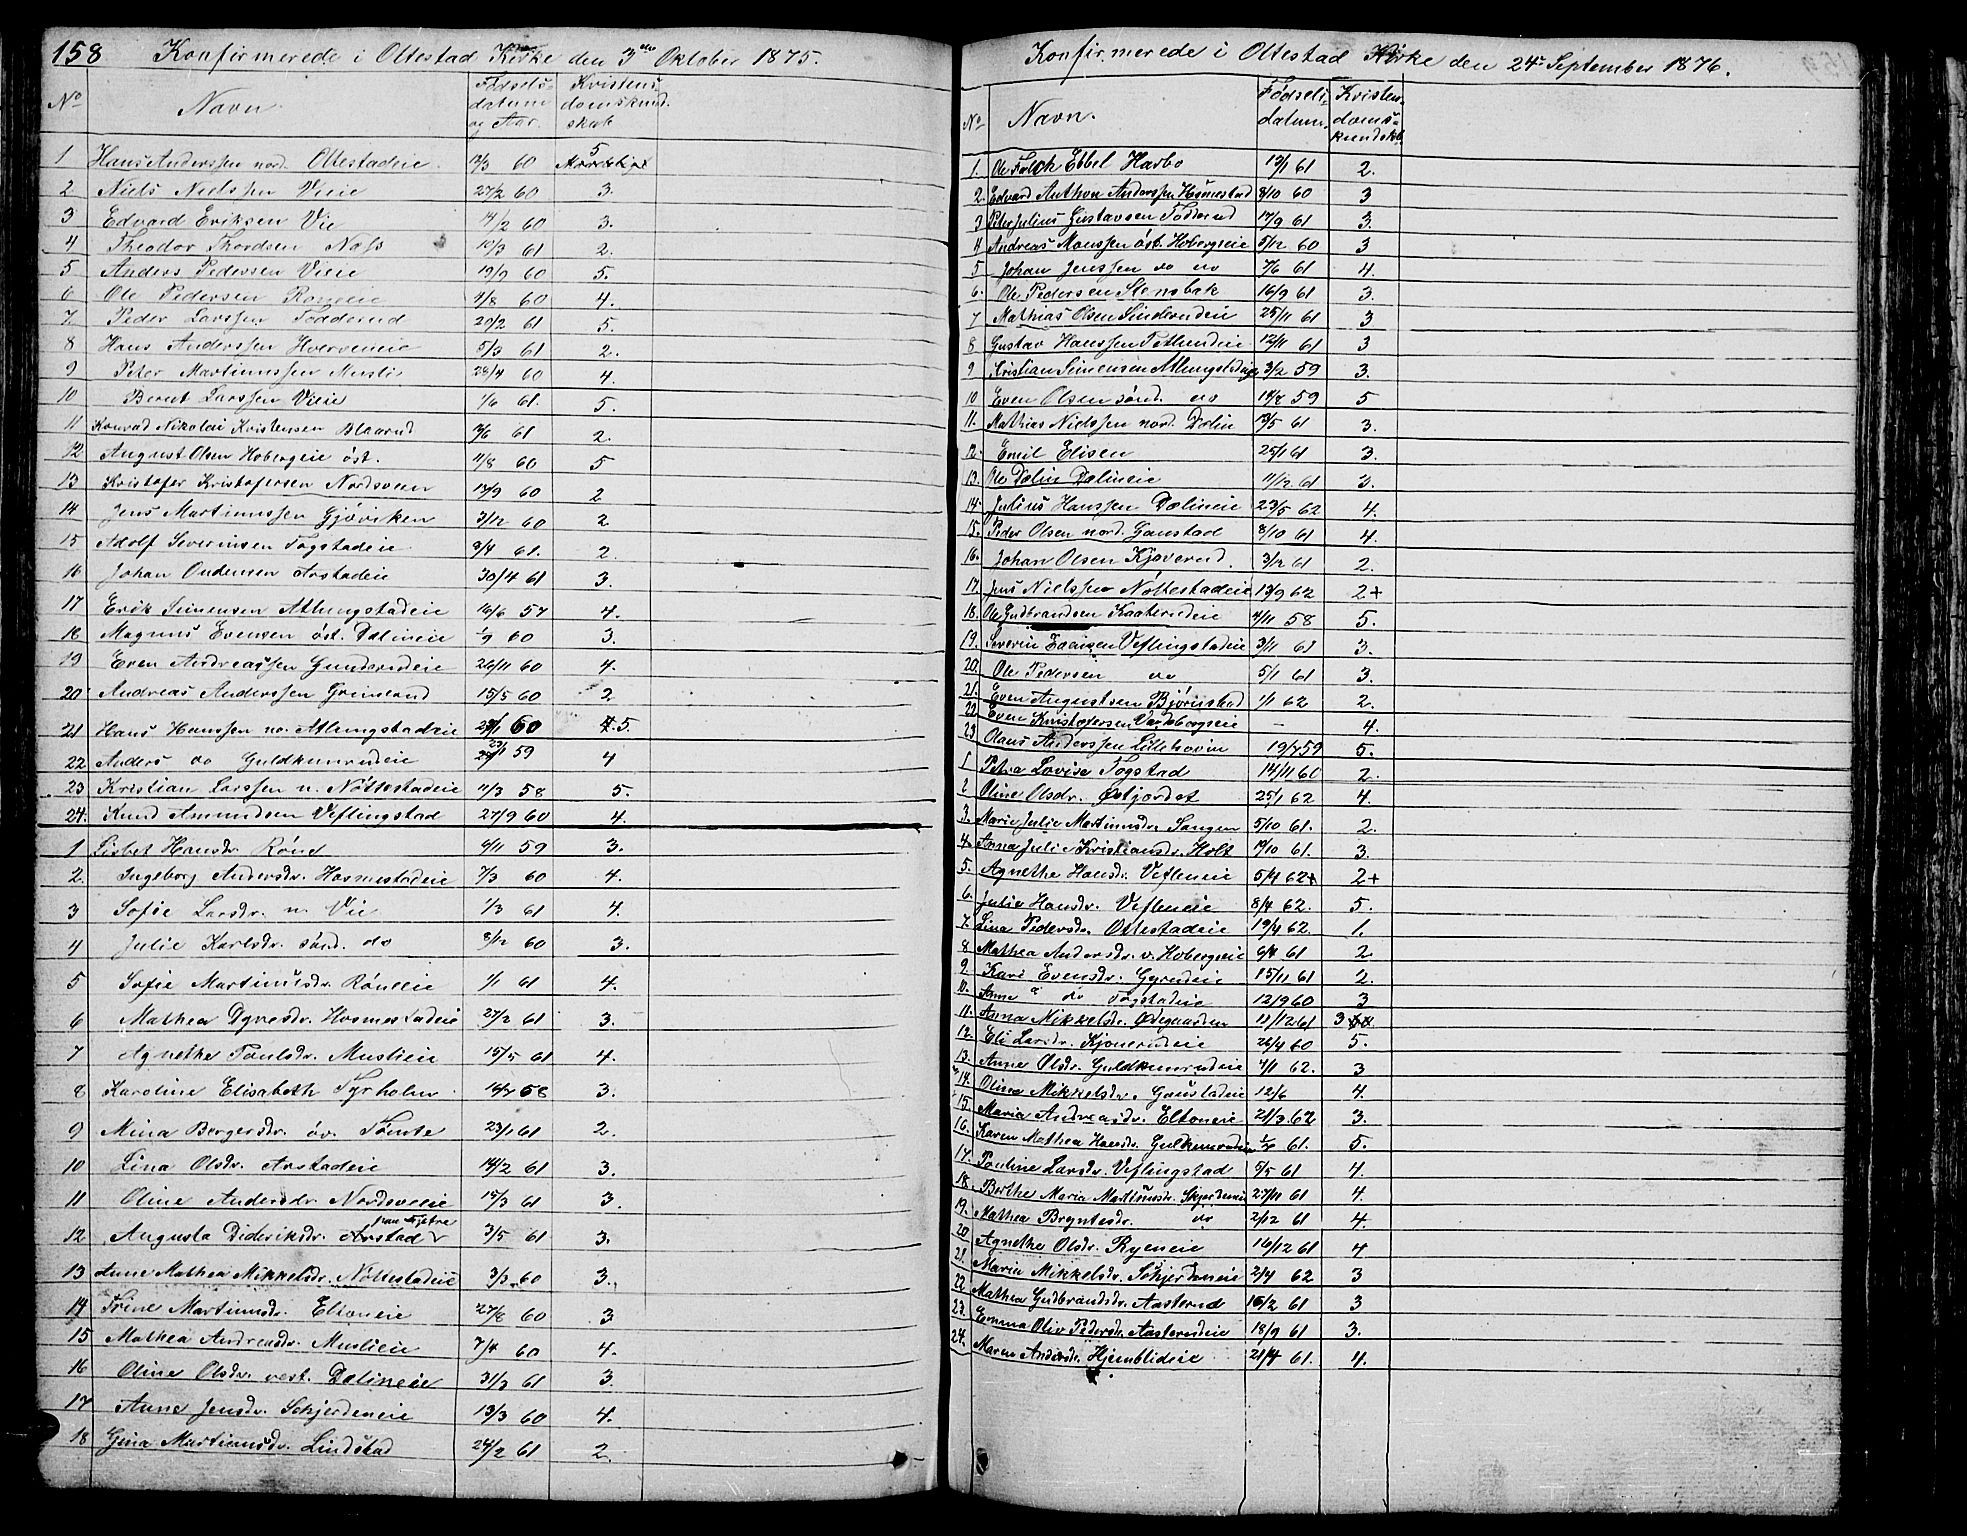 158 Konfirmerede i Ottestad Kirke den 3die Oktober 1875.
No Navn. Fødsels- datum og Aar. Kristen- domskund- skab
1 Hans Anderssen nord. Ottestadeie 60 5
2 Niels Nielssen Vieie 27/2 60 3.
3 Edvard Eriksen Vie 14/2 60 3.
4 Theodor Thordsen Næss 10/3 61 2.
5 Anders Pedersen Vieie 19/9 60 5.
6 Ole Pedersen Røneeie 4/8 60 4.
7 Peder Larssen Fodderud 20/2 61 5.
8 Hans Anderssen 5/3 61 2.
9 Peter Martinussen 28/4 60 4.
10 Bernt Larssen Vieie 1/6 61. 5.
11 Konrad Nikolai Kristensen Blaarud 61 2.
12 August Olsen Hobergeie öst. 11/8 60 5
13 Kristofer Kristofersen Nordsveen 17/9 60 2
14 Jens Martinussen Gjöviken 3/12 60 2
15 Adolf Severinsen Fogstadeie 61. 2.
16 Johan Andersen Arstadeie 30/4 61 3.
17 Erik Simensen Atlungstadeie 16/6 57 4.
18 Magnus Evensen öst. Dælineie 60 3.
19 Even Andreassen Gunderudeie 26/11 60 4.
20 Andreas Anderssen Grimerud 15/5 60 2
21 Hans Hanssen no. Atlungstadeie 60 5.
22 Anders do Guldkunrudeie 23/1 59 4
23 Kristian Larssen n. Nöttestadeie 11/3 58 5.
24. Knud Amundsen Veflingstad 27/9 60 4.
1 Lisbet Hansdr. Röne 4/11 59 3.
2. Ingeborg Andersdr. Hosmestadeie 7/3 60 4.
3 Sofie Larsdr. n. Vie 1/3 61 4.
4 Julie Karlsdr. sönd. do 8/12 60 3.
5 Sofie Martinusdr. Röneeie 1/1 61 4.
6 Mathea Dyresdr. Hosmestadeie 27/2 61 3.
7 Agnethe Poulsdr. Muslieie 15/5 61 4.
8 Karoline Elisabeth Fyrholm 58 3.
9 Mina Bergersdr. öv. Tömte 23/1 61 2.
10 Lina Olsdr. Arstadeie 14/2 61 3.
11 Oline Andersdr. Nordsveeie 15/3 61 3.
12 Augusta Dideriksdr. Arstad 3/5 61 3.
13 Anne Mathea Mikkelsdr. Nöttestadeie 3/3 60 3.
14 Trine Martinusdr. Eltoneie 27/8 60 3
15 Mathea Andreasdr. Muslieie 7/4 60 4.
16 Oline Olsdr. vest. Dælineie 31/3 61 3.
17 Anne Jensdr. Skjerdeneie 13/3 60 4.
18 Gina Martinusdr. Lindstad 24/2 61 2.
Konfirmerede i Ottestad Kirke den 24de September 1876.
No Navn. Fødsels- datum. Kristen- doms- kundskb
1. Ole Falch Ebbel Harbo 61 2.
2. Edvard Anthon Anderssen Hosmestad 8/10 60 3
3 Peter Julius Gustavsen Fodderud 17/9 61 3.
4 Andreas Monssen öst. Hobergseie 5/12 60 3
5 Johan Jenssen do do 7/6 61 4.
6. Ole Pedersen Stensbak 16/9 61 3.
7 Mathias Olsen 25/11 61 3
8 Gustav Hanssen 12/11 61 3
9 Kristian Simensen 3/2 59 3.
10 Even Olsen sönd. do 59 5
11. Mathias Nielssen nord. Dælin 61 3.
12. Emil Elisen 25/1 61 3.
13. Ole Dælin Dælineie 11/12 61 3.
14. Julius Hanssen Dælineie 23/5 62 4.
15. Peder Olsen nord. Gaustad 8/10 61 4.
16. Johan Olsen Kjoverud 3/12 61 2.
17. Jens Nielssen Nöttestadeie 13/9 62 2+
18. Ole Gudbrandsen Kaaterudeie 4/11 58 5.
19. Severin Veflingstadeie 3/11 61 3.
20. Ole Pedersen do 5/1 61 3.
21. Even Augustsen Björnstad 1/1 62 2.
22. Even Kristofersen Vardebergseie – 4.
23 Olaus Anderssen Lillehovin 19/7 59 5.
1 Petra Lovise Fogstad 14/11 60 2.
2 Oline Olsdr. Østjordet 25/1 62 4.
3. Marie Julie Martinusdr. Sangen 5/10 61. 2.
4. Anna Julie Kristiansdr. Holt 61. 3.
5. Agnethe Hansdr. Vefleneie 5/4 62+ 2+
6. Julie Hansdr. Vefleneie 8/4 62. 5.
7. Lina Pedersdr. Ottestadeie 19/4 62. 1.
8 Mathea Andersdr. v. Hobergseie 61 2
9. Kari Evensdr. Gyrudeie 15/11 61 2.
10. Anne do Fogstadeie 12/9 60 3
11. Anna Mikkelsdr. Ødegaarden 11/12 61 3
12. Eli Larsdr. Kjonerudeie 26/4 60 5.
13. Anne Olsdr. Guldkunrudeie 4/1 62. 3
14. Olinea Mikkelsdr. Gaustadeie 12/6 4.
15. Maria Andreasdr. Eltoneie 21/3 62 3.
16. Karen Mathea Hansdr. Guldkunrudeie 61. 5.
17. Pauline Larsdr. Veflingstad 5/5 61 4.
18. Berthe Maria Martinusdr. Skjerdeneie 27/11 61 4.
19. Mathea Bryntesdr. do 2/12 61 4.
20 Agnethe Olsdr. Ryeneie 16/12 61 4
21. Marie Mikkelsdr. Skjerdeneie 2/4 62 3
22. Mathea Gudbrandsdr. Aasterud 16/2 61 3
23. Emma Oliv Pedersdr. Aasterudeie 18/9 61 3.
24. Maren Andersdr. Hjemblideie 21/4 61. 4.